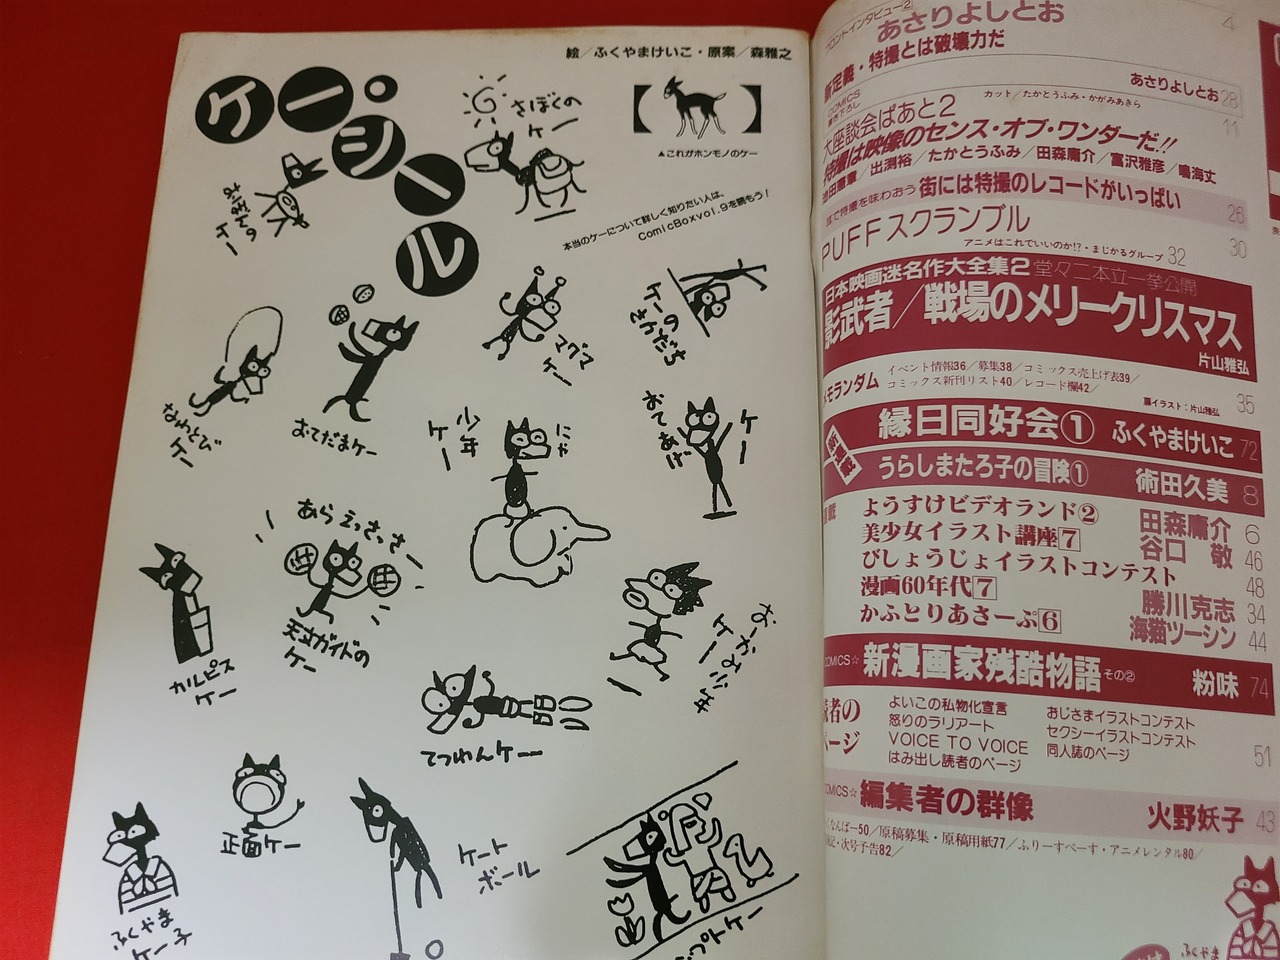 絵／ふくやまけいこ・原案／森雅之
ケー・シール
さばくの
ケー
▲これがホンモノのケー
本当のケーについて詳しく知りたい人は、
ComicBoxvol.9を読もう！
マグマ
ケー
ケーの
さかだち
なわとび
ケー
おてだまケー
少年
ケー
にゃ
おてあげ
ケー
あらえっさっさー
カルピス
ケー
天気ガイドの
ケー
おーかみ少年
ケー
てつわんケー
正面ケー
ふくやま
ケー子
ケート
ボール
プトケー
フロントインタビュー2
あさりよしとお
4
新定義・特撮とは破壊力だ
あさりよしとお28
COMICS
カット／たかとうふみ・かがみあきら
大座談会ぱあと2
11
特撮は映像のセンス・オブ・ワンダーだ!!
池田憲章／出渕裕／たかとうふみ／田森庸介／富沢雅彦／鳴海丈
耳で特撮を味わおう 街には特撮のレコードがいっぱい
26
PUFFスクランブル
30
アニメはこれでいいのか!?・まじかるグループ 32
日本映画迷名作大全集2 堂々二本立一挙公開
影武者／戦場のメリークリスマス
片山雅弘
メモランダム
イベント情報36／募集38／コミックス売上げ表39／
コミックス新刊リスト40／レコード欄42／
扉イラスト：片山雅弘
35
新連載
縁日同好会① ふくやまけいこ 72
うらしまたろ子の冒険① 術田久美 8
連載
ようすけビデオランド② 田森庸介 6
美少女イラスト講座7 谷口 敬 46
びしょうじょイラストコンテスト 48
漫画60年代7 勝川克志 34
かふとりあさーぷ6 海猫ツーシン 44
COMICS☆ 新漫画家残酷物語 その② 粉味 74
読者の
ページ
よいこの私物化宣言
怒りのラリアート
VOICE TO VOICE
はみ出し読者のページ
おじさまイラストコンテスト
セクシーイラストコンテスト
同人誌のページ
51
COMICS☆ 編集者の群像 火野妖子 43
なんばー50／原稿募集・原稿用紙77／ふりーすぺーす・アニメレンタル80／
記・次号予告82／
ふくやま